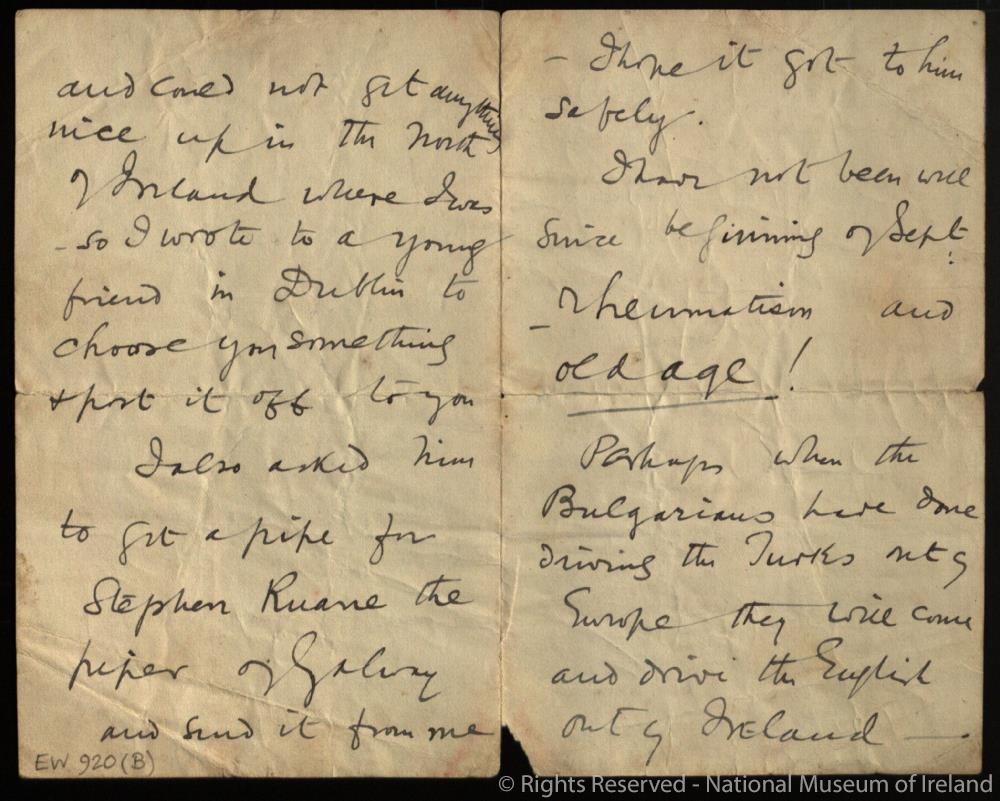 and could not get anything
nice up in the North
of Ireland where I was
- so I wrote to a young
friend in Dublin to
choose you something
& post it off to you
I also asked him
to get a pipe for
Stephen Ruane the
piper of Galway
and send it from me
EW 920(B)
- I hope it got to him
safely.
I have not been well
since beginning of Sept.
- rheumatism and
old age!
Perhaps when the
Bulgarians have done
driving the Turks out of
Europe they will come
and drive the English
out of Ireland —.
© Rights Reserved - National Museum of Ireland